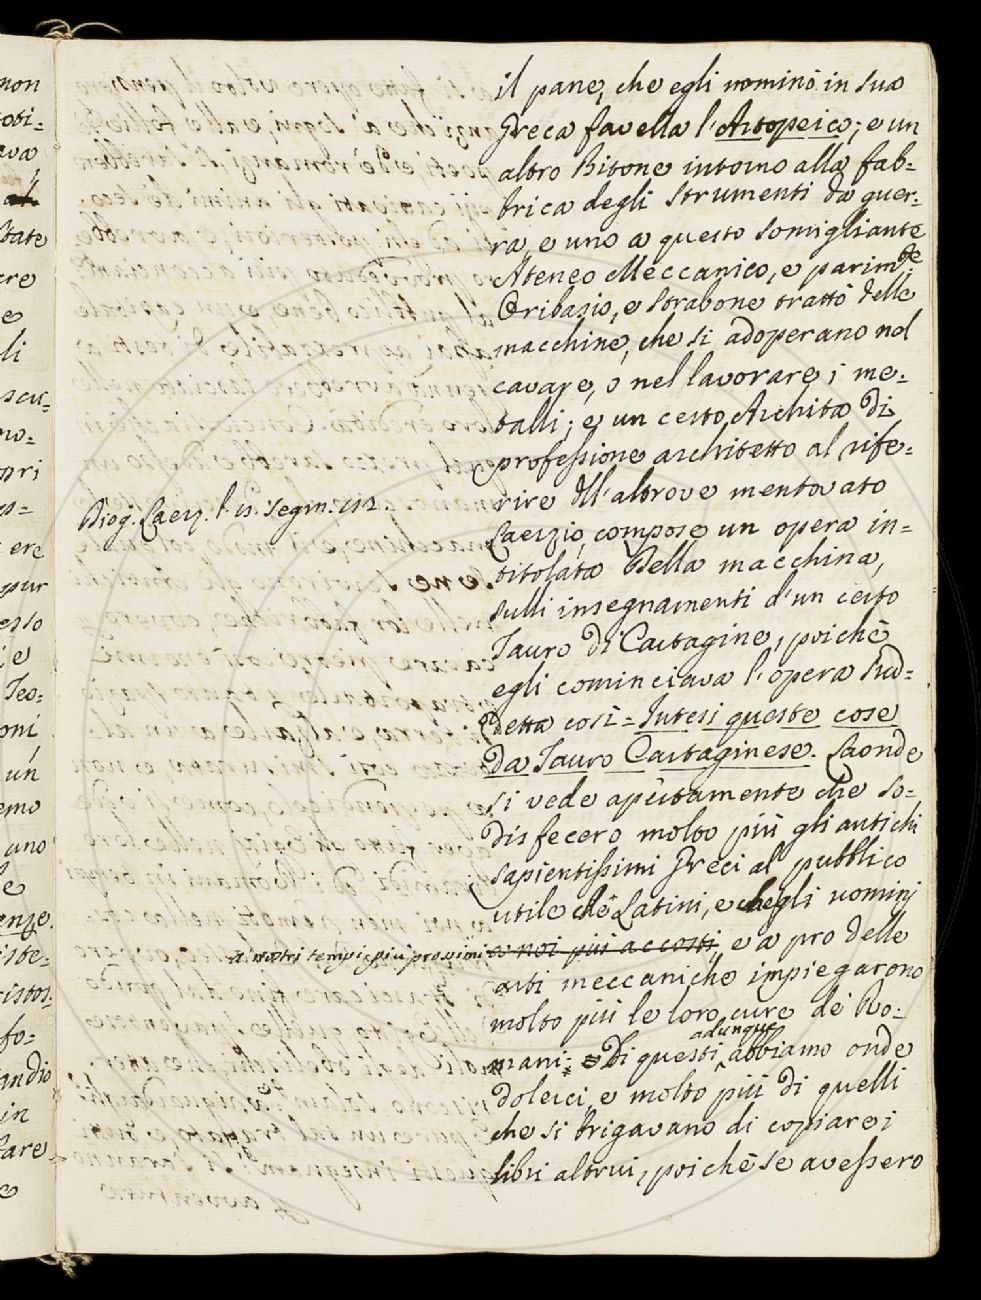 il pane, che egli nominò in sua
Greca favella l'Artopeico; e un
altro Bitone intorno alla fab-
brica degli strumenti da guer-
ra, e uno a questo somigliante
Ateneo Meccanico, e parim.te
Oribasio, e Strabone trattò delle
macchine, che si adoperano nel
cavare, o nel lavorare i me-
talli; e un certo Archita di
professione architetto al rife-
rire dell'altrove mentovato
Laerzio, compose un opera in-
titolata Della macchina,
sulli insegnamenti d'un certo
Tauro di Cartagine, poichè
egli cominciava l'opera sud-
detta così = Intesi queste cose
da Tauro Cartaginese. Laonde
si vede apertamente che so-
disfecero molto più gli antichi
sapientissimi Greci al pubblico
utile che Latini, e che gli uomini
a noi più accosti, e a pro delle
arti meccaniche impiegarono
molto più le loro cure de Ro-
mani: Di questi adunque abbiamo onde
dolerci, e molto più di quelli
che si brigavano di copiare i
libri altrui, poichè se avessero
Diog. Laerz. l.
segm.
a' nostri tempi più prossimi
non
ava
tate
ere
e
li
scu-
pri
ere
pur
esso
e
Teo-
oni
un
emo
uno
e
enze.
iste-
istos.
fo-
andio
in
tare
e